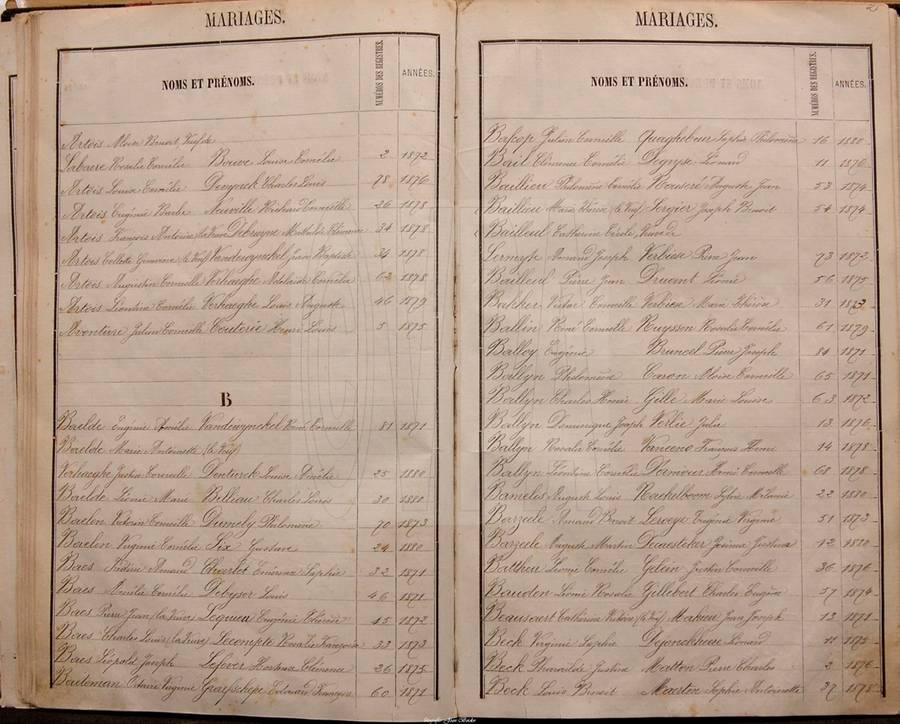 MARIAGES.
NOMS ET PRÉNOMS. NUMÉROS DES REGISTRES ANNÉES.
Artois Aloise Benoit
Labaere Rosalie Cornélie Bouve Louisa Cornélie 2 1872
Artois Louisa Cornélie Deruyck Charles Louis 78 1876
Artois Eugénie Barbe Neuville Richard Corneille 26 1878
Artois François Antoine Debruyne Mathilde Philomène 34 1878
Artois Collette Genevieve (le Veuf) Vandewynckel Jean Baptiste 1878
Artois Augustin Corneille Verhaeghe Adelaïde Cornélie 62 1878
Artois Léontine Cornélie Verhaeghe Louis Auguste 46 1879
Aventure Julien Corneille Couterie Henri Louis 5 1875
B
Baelde Eugénie Amélie Vandewynckel René Corneille 81 1871
Baelde Marie Antoinette (le Veuf)
Verhaeghe Justin Corneille Denturck Louise Amélie 25 1880
Baelde Léonie Marie Billeau Charles Louis 30 1880
Baelen Victorin Corneille Dumely Philomène 70 1873
Baelen Virginie Cornélie Six Gustave 24 1880
Baes Amand Charlet Sophie 32 1871
Baes Amélie Cornélie Debyser Louis 46 1871
Baes Pierre Jean (la Veuve) Lequieu Eugénie 45 1872
Baes Charles Louis (la Veuve) Lecompte Rosalie Françoise 33 1873
Baes Léopold Joseph Lefever Hortense Clémence 26 1875
Bateman Octavie Virginie Edouard François 60 1871
MARIAGES. 2
NOMS ET PRÉNOMS. NUMÉROS DES REGISTRES ANNÉES.
Bafcop Julien Corneille Quaghebeur Sophie Philomène 16 1880
Bail Etiennie Cornélie Degryse Léonard 11 1876
Baillieu Philomène Cornélie Rousseré Auguste Jean 53 1874
Bailleau Marie Thérèse (le Veuf) Sergier Joseph Benoit 54 1874
Bailleul Catherine Cécile
Lermyte Amand Joseph Verbièse Jean 73 1872
Bailleul Pierre Jean Druant Léonie 56 1875
Bakker Victor Corneille Verbièse Marie Thérèse 31 1873
Ballin René Corneille Ruyssen Rosalie Cornélie 61 1879
Balloy Eugénie Bruneel Pierre Joseph 84 1871
Ballyn Philomène Caron Aloise Corneille 65 1871
Ballyn Charles Henri Gille Marie Louise 63 1872
Ballyn Dominique Joseph Verlie Julie 13 1876
Ballyn Rosalie Cornélie François Henri 14 1878
Ballyn Léontine Cornélie Henri Corneille 68 1878
Bamelis August Louis Rackelboom Sylvie Mélanie 22 1880
Barzeele Amand Benoit Leweze Eugénie Virginie 51 1873
Barzeele Auguste Martin Justine 12 1880
Battheu Léonie Cornélie Gelein Justin Corneille 36 1876
Bauden Léonie Rosalie Gillebert Charles Eugène 57 1874
Beausaert Catherine (le Veuf) Mahieu Jean Joseph 13 1871
Beck Virginie Sophie Dejonckheere Léonard 11 1875
Beck Pharaïlde Justine Matton Pierre Charles 2 1876
Beck Louis Benoit Maerten Sophie Antoinette 27 1878